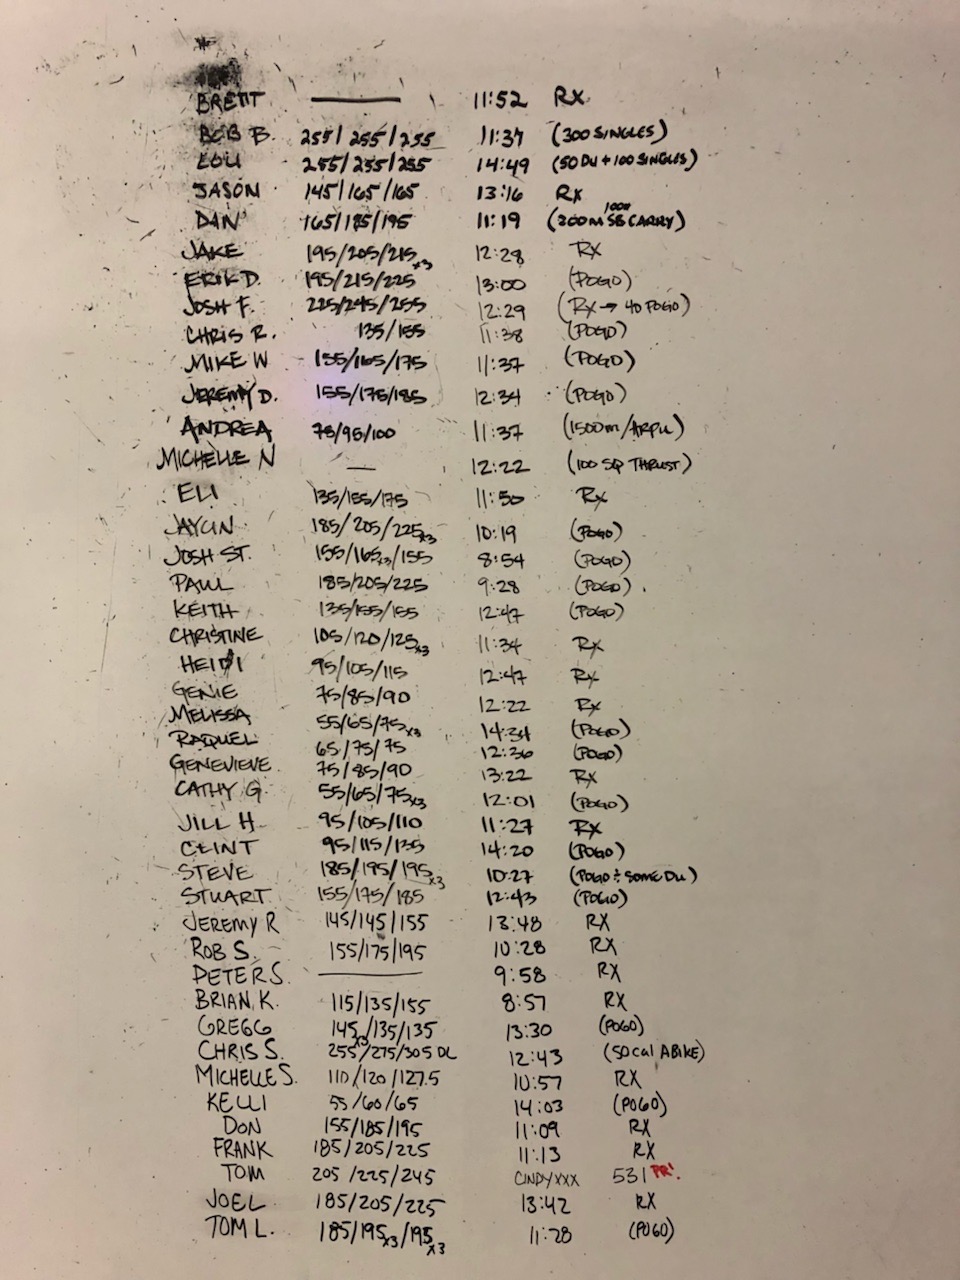 BRETT — 11:52 RX
BOB B. 255/255/255 11:37 (300 SINGLES)
LOU 255/255/255 14:49 (50 DU + 100 SINGLES)
JASON 145/165/165 13:16 RX
DAN 165/185/195 11:19 (200m 100# SB CARRY)
JAKE 195/205/215x3 12:28 RX
ERIK D. 195/215/225 13:00 (POGO)
JOSH F. 225/245/255 12:29 (RX → 40 POGO)
CHRIS R. 135/155 11:38 (POGO)
MIKE W 155/165/175 11:37 (POGO)
JEREMY D. 155/175/185 12:34 (POGO)
ANDREA 75/95/100 11:37 (1500m/ARPU)
MICHELLE N — 12:22 (100 SQ THRUST)
ELI 135/155/175 11:50 RX
JAYLIN 185/205/225x3 10:19 (POGO)
JOSH ST. 155/165x3/155 8:54 (POGO)
PAUL 185/205/225 9:28 (POGO)
KEITH 135/155/155 12:47 (POGO)
CHRISTINE 105/120/125x3 11:34 RX
HEIDI 95/105/115 12:47 RX
GENIE 75/85/90 12:22 RX
MELISSA 55/65/75x3 14:34 (POGO)
RAQUEL 65/75/75 12:36 (POGO)
GENEVIEVE 75/85/90 13:22 RX
CATHY G 55/65/75x3 12:01 (POGO)
JILL H. 95/105/110 11:27 RX
CLINT 95/115/135 14:20 (POGO)
STEVE 185/195/195x3 10:27 (POGO + SOME DU)
STUART 155/175/185 12:43 (POGO)
JEREMY R 145/145/155 13:48 RX
ROB S. 155/175/195 10:28 RX
PETER S. — 9:58 RX
BRIAN K. 115/135/155 8:57 RX
GREGG 145x3/135/135 13:30 (POGO)
CHRIS S. 255/275/305 DL 12:43 (50 cal ABIKE)
MICHELLE S. 110/120/127.5 10:57 RX
KELLI 55/60/65 14:03 (POGO)
DON 155/185/195 11:09 RX
FRANK 185/205/225 11:13 RX
TOM 205/225/245 CINDYXXX 531 PR!
JOEL 185/205/225 13:42 RX
TOM L. 185/195x3/195x3 11:28 (POGO)